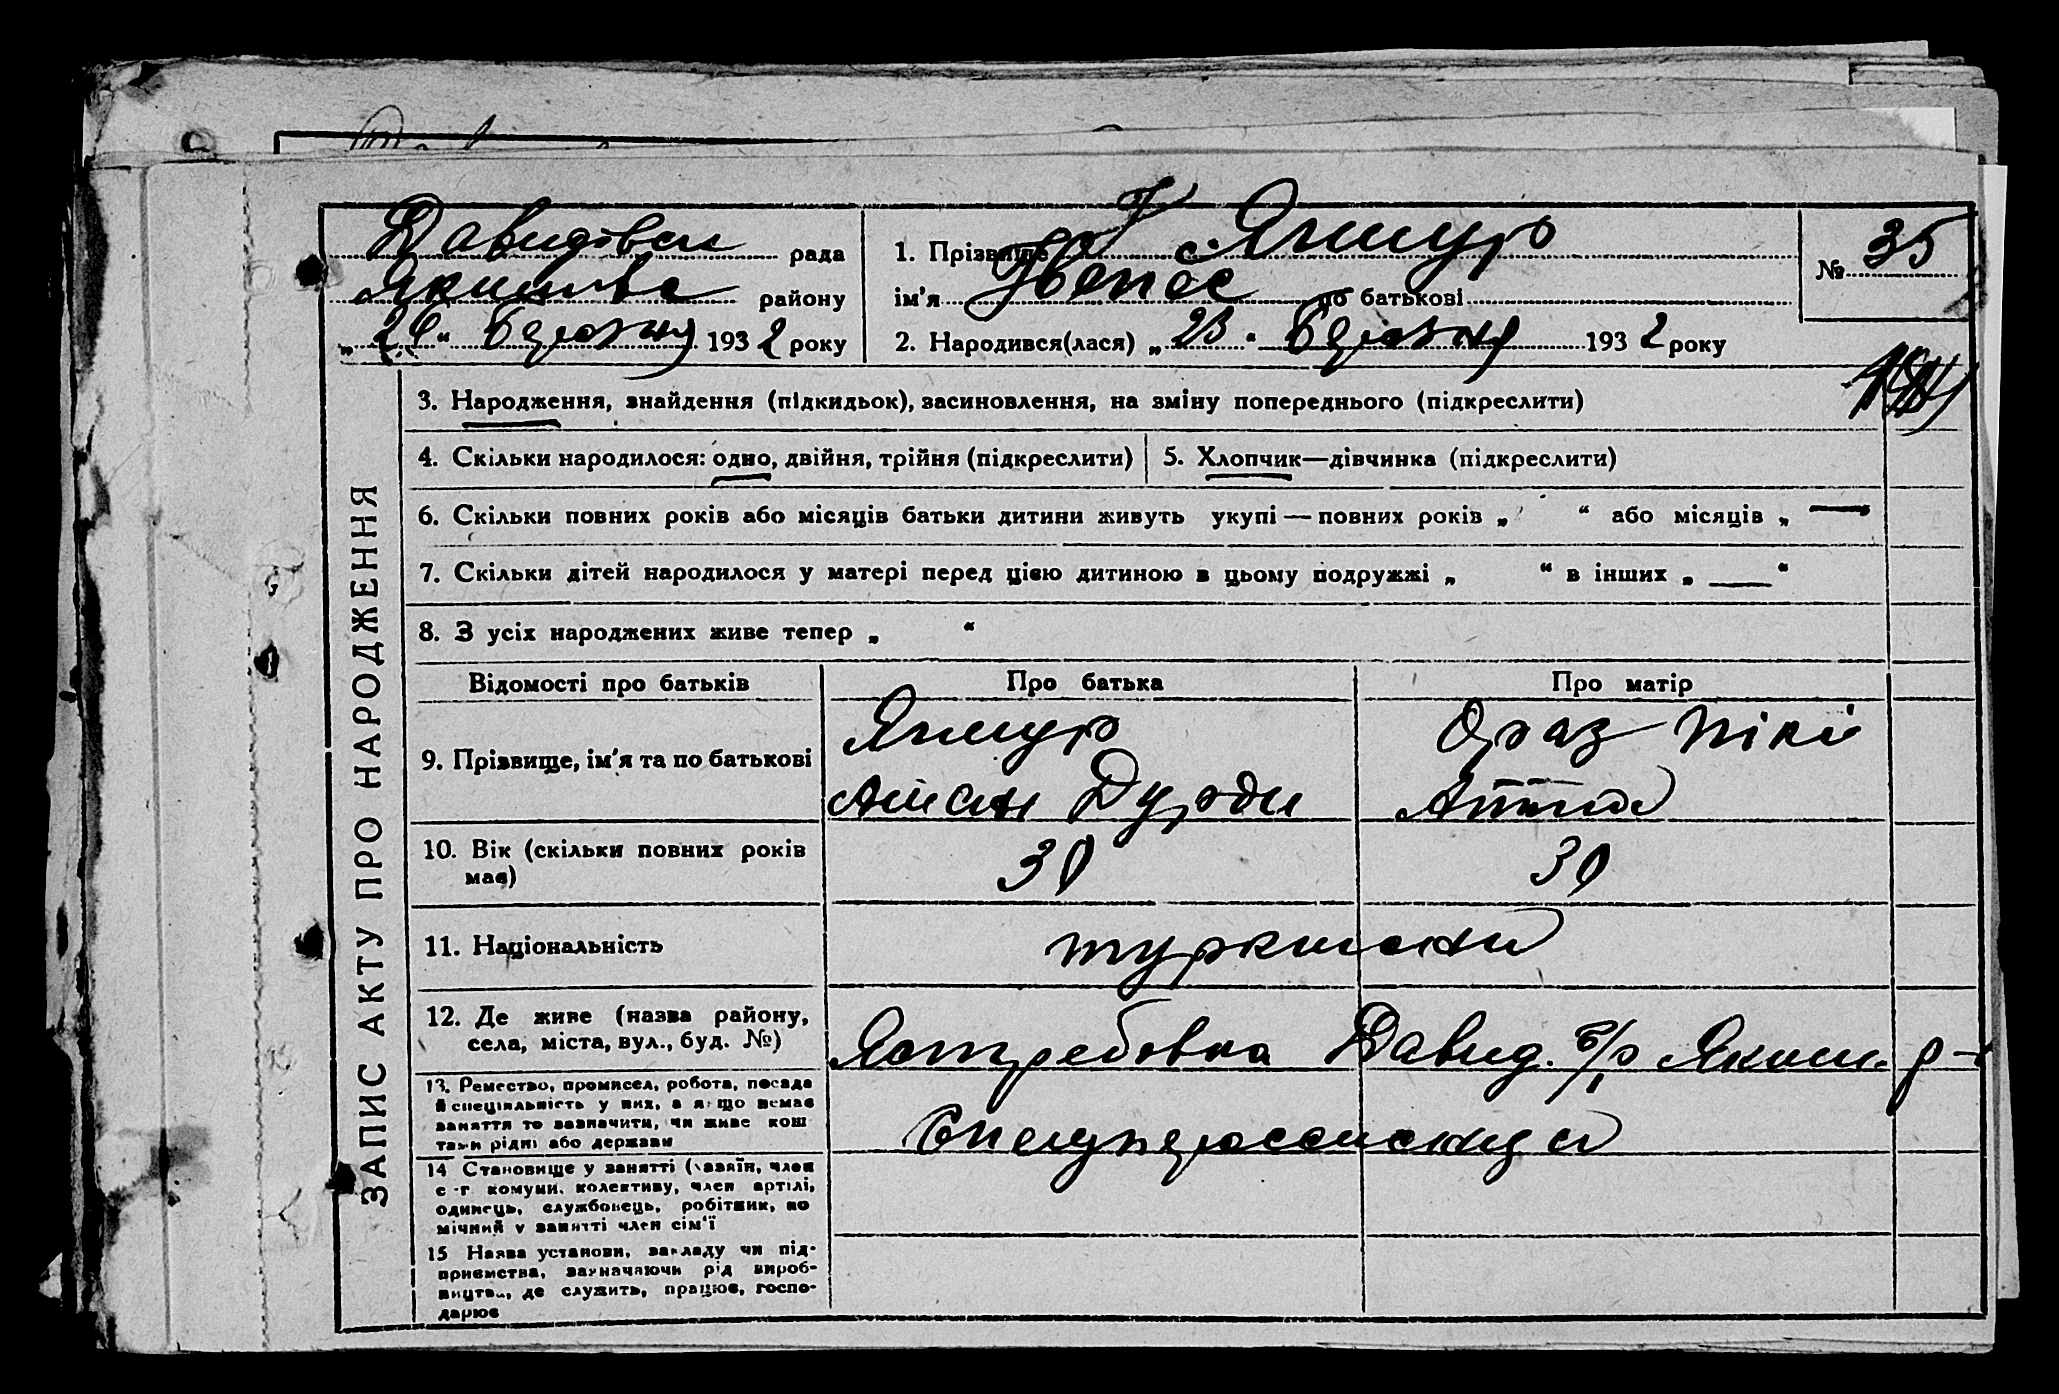 Давидівськ рада
Якимівс району
„26“ березня 1932 року
1. Прізвище Ягмур
ім'я по батькові
2. Народився(лася) „23“ березня 1932 року
№ 35
ЗАПИС АКТУ ПРО НАРОДЖЕННЯ
3. Народження, знайдення (підкидьок), засиновлення, на зміну попереднього (підкреслити)
4. Скільки народилося: одно, двійня, трійня (підкреслити)
5. Хлопчик—дівчинка (підкреслити)
6. Скільки повних років або місяців батьки дитини живуть укупі — повних років „ “ або місяців „ — “
7. Скільки дітей народилося у матері перед цією дитиною в цьому подружжі „ “ в інших „ — “
8. З усіх народжених живе тепер „ “
Відомості про батьків Про батька Про матір
9. Прізвище, ім'я та по батькові
Ягмур Ораз Пікі
Аман Дурди
10. Вік (скільки повних років
має)
30 30
11. Національність
туркмени
12. Де живе (назва району,
села, міста, вул., буд. №)
Ястребовка Давид. с/р Яким. р-
13. Ремество, промисел, робота, посада
й спеціяльність у них, а якщо немає
заняття то зазначити, чи живе кош
тами рідні або держави
Спецпереселенці
14 Становище у занятті (хазяїн, член
с-г комуни, колективу, член артілі,
одинець, службовець, робітник, по
мічний у занятті член сім'ї
15 Назва установи, закладу чи під-
приємства, зазначаючи рід вироб-
ництва, де служить, працює, госпо-
дарює